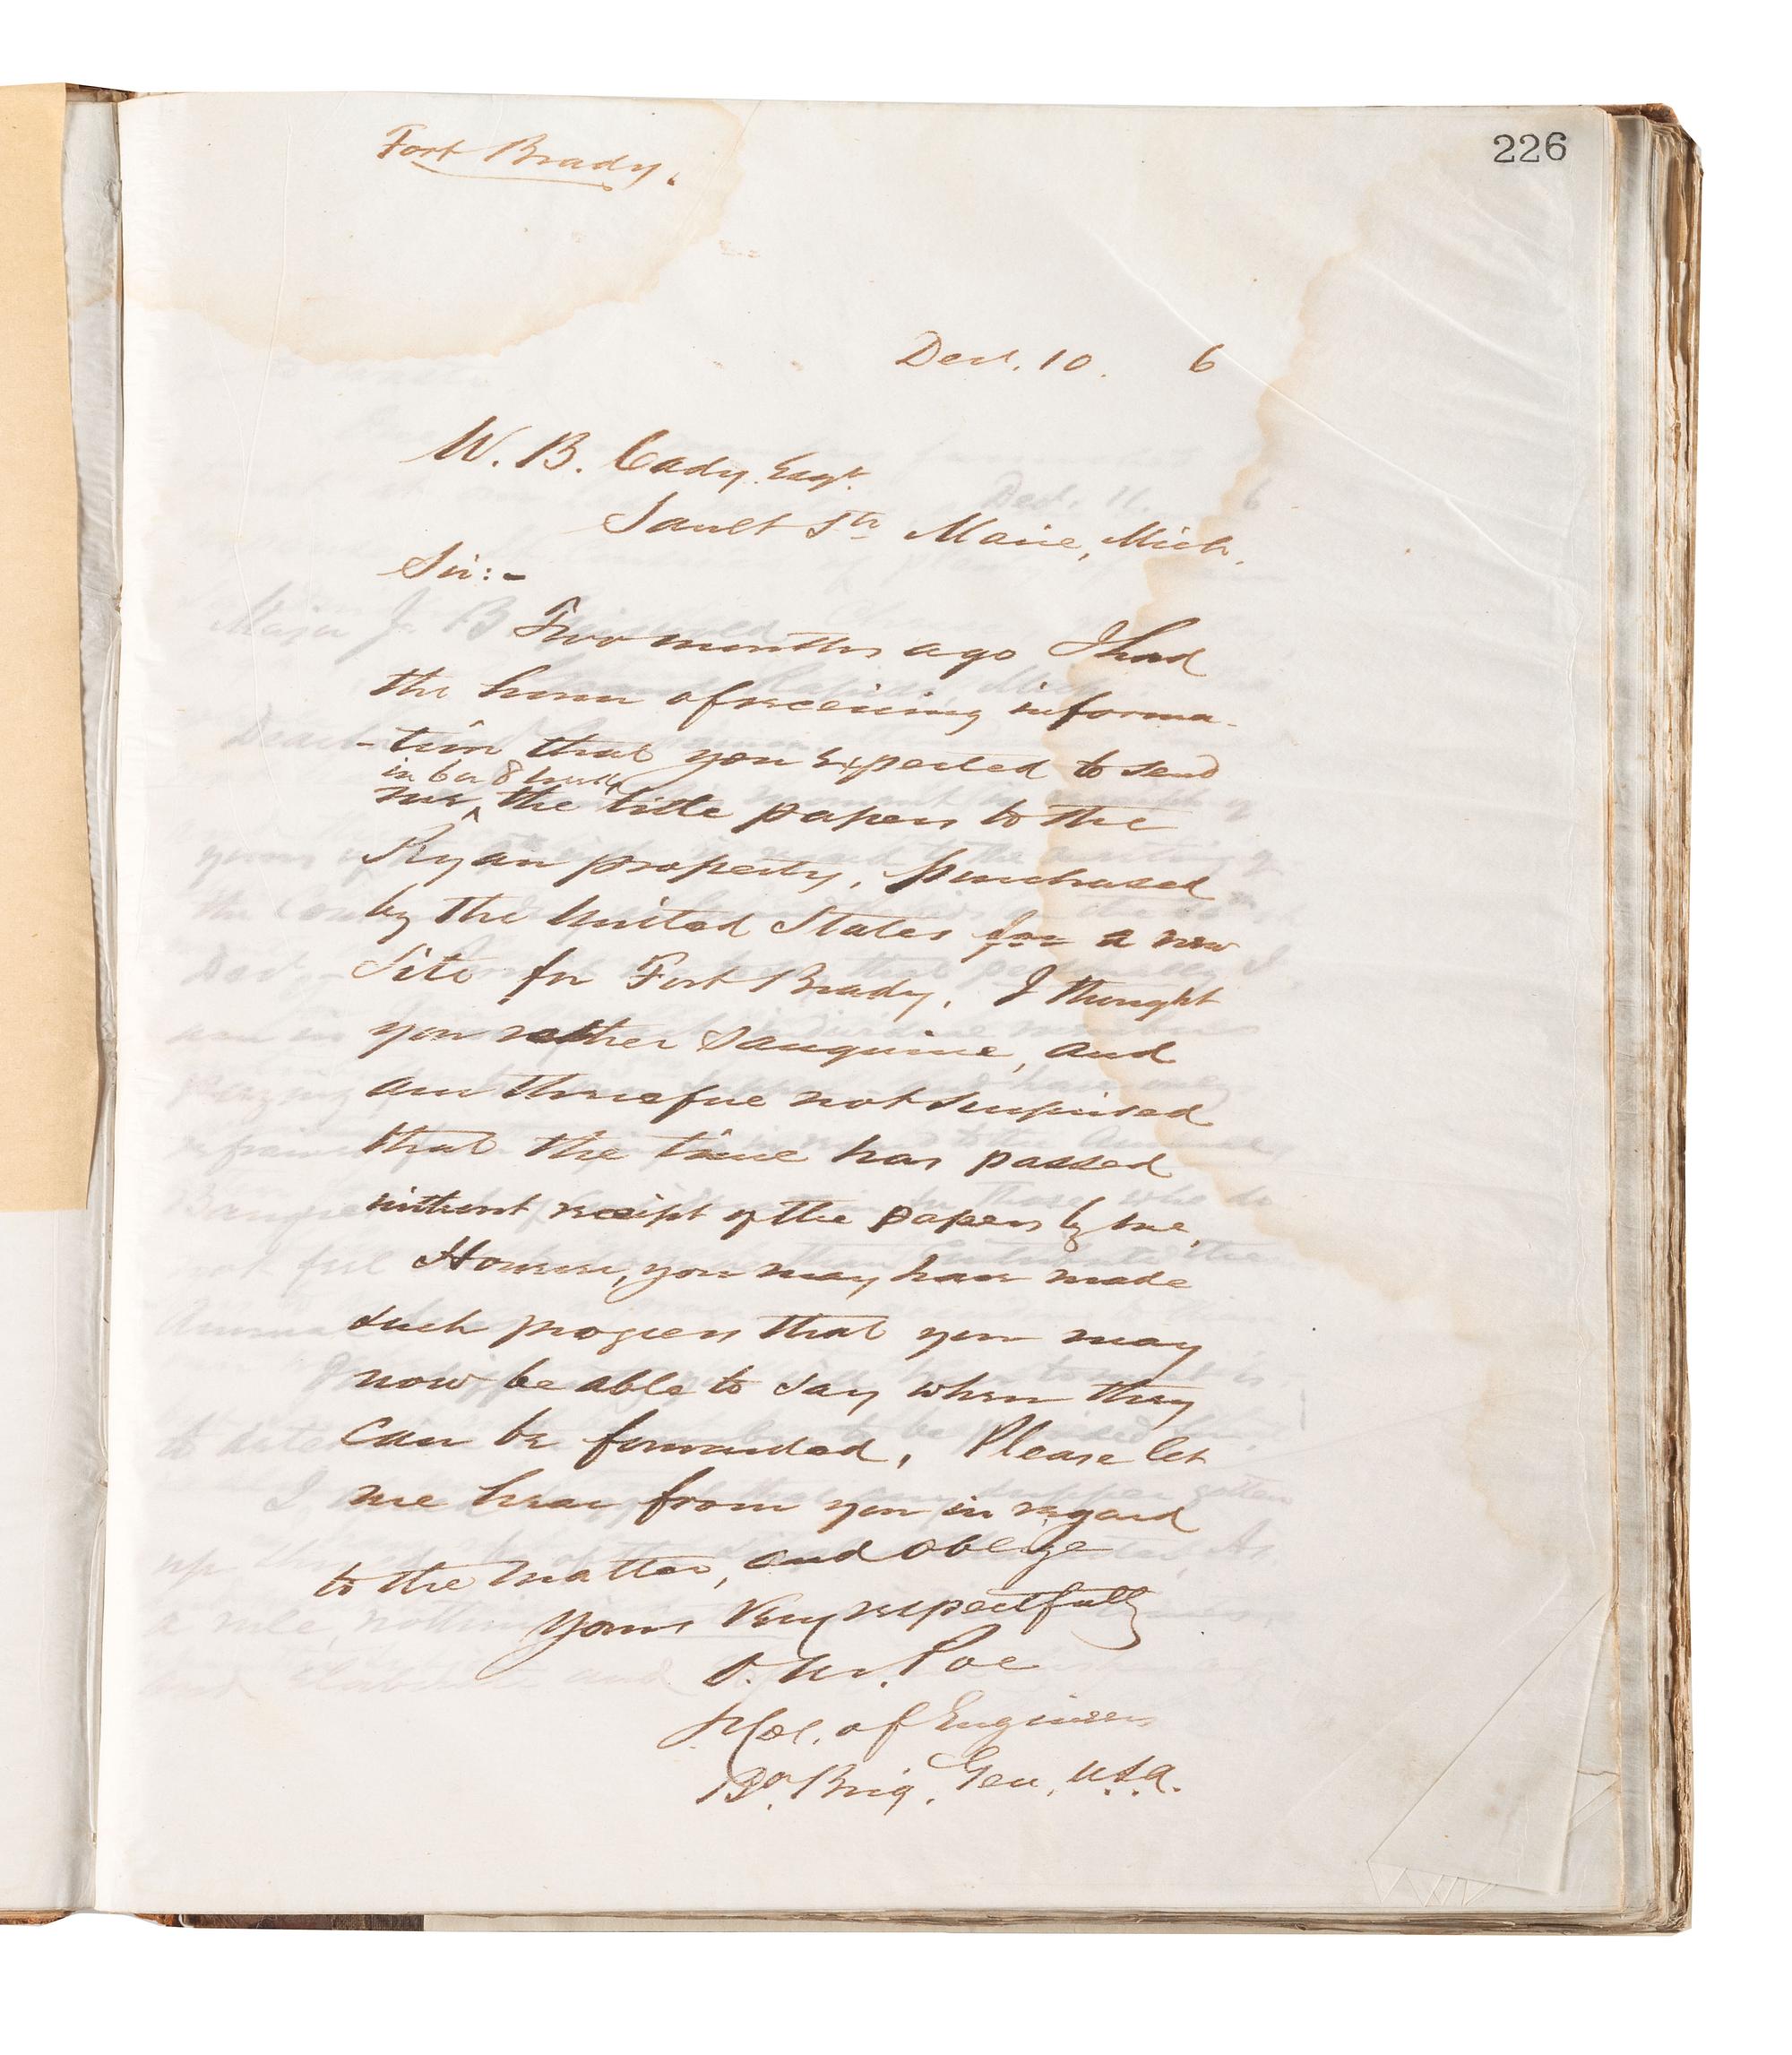 226
Fort Brady.
Dec. 10. 6
W. B. Cady Esqr.
Sault Ste Marie, Mich.
Sir:-
Two months ago I had
the honor of receiving informa-
-tion that you expected to send
in 6 or 8 weeks
me ^ the title papers to the
Ryan property, purchased
by the United States for a new
site for Fort Brady. I thought
you rather sanguine, and
am therefore not surprised
that the time has passed
without receipt of the papers by me.
However, you may have made
such progress that you may
now be able to say when they
can be forwarded. Please let
me hear from you in regard
to the matter, and oblige
Yours Very respectfully
O. M. Poe
Col. of Engineers
Bt. Brig. Gen. U.S.A.